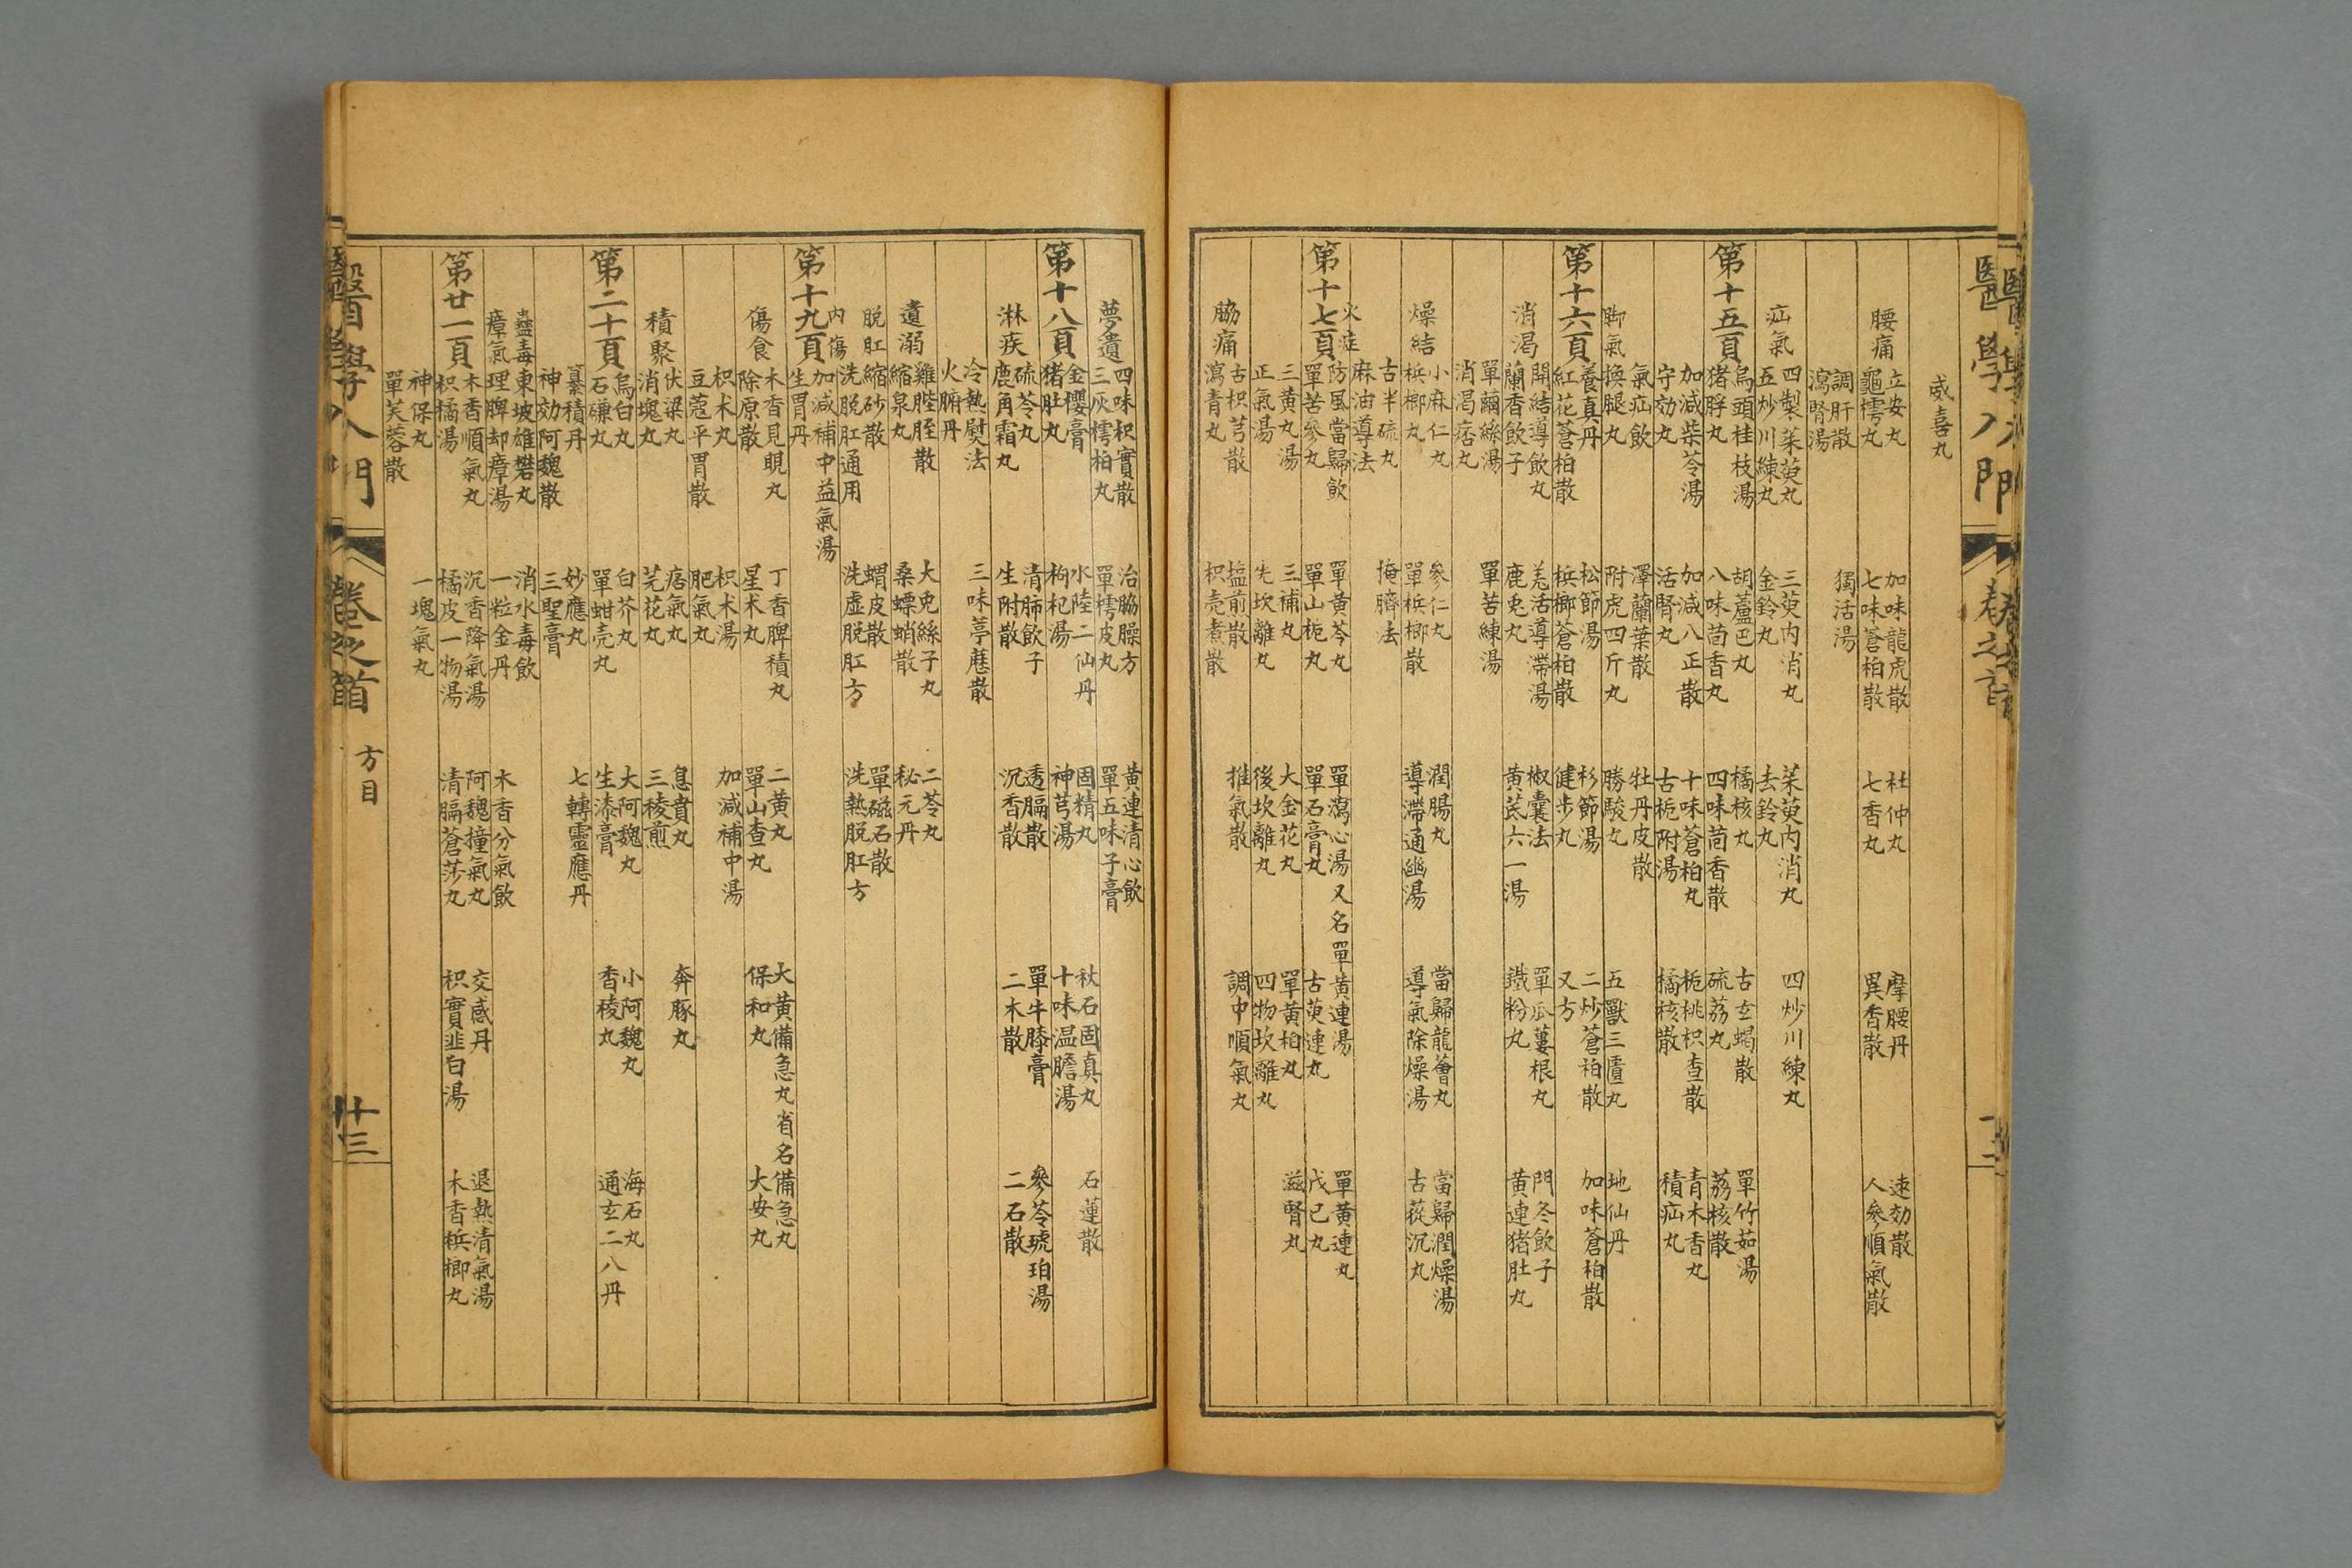 醫學入門 卷之首
威喜丸
腰痛
立安丸 加味龍虎散 杜仲丸 摩腰丹 速効散
龜樗丸 七味蒼柏散 七香丸 異香散 人參順氣散
調肝散 獨活湯
瀉腎湯
疝氣
四製茱萸丸 三萸内消丸 茱萸内消丸 四炒川練丸
五炒川練丸 金鈴丸 去鈴丸
第十五頁
烏頭桂枝湯 胡蘆巴丸 橘核丸 古玄蝎散 單竹茹湯
猪脬丸 八味茴香丸 四味茴香散 硫荔丸 荔核散
加減柴苓湯 加減八正散 十味蒼柏丸 栀桃枳查散 青木香丸
守効丸 活腎丸 古栀附湯 橘核散 積疝丸
氣疝飲 澤蘭葉散 牡丹皮散
脚氣
換腿丸 附虎四斤丸 勝駿丸 五獸三匱丸 地仙丹
第十六頁
養真丹 松節湯 杉節湯 二炒蒼柏散 加味蒼柏散
紅花蒼柏散 梹榔蒼柏散 健步丸 又方
消渴
開結導飲丸 羌活導滯湯 椒囊法 單瓜蔞根丸 門冬飲子
蘭香飲子 鹿兎丸 黄茋六一湯 鐵粉丸 黄連猪肚丸
單繭絲湯 單苦練湯
消渴痞丸
燥結
小麻仁丸 參仁丸 潤腸丸 當歸龍薈丸 當歸潤燥湯
梹榔丸 單梹榔散 導滯通幽湯 導氣除燥湯 古蓯沉丸
古半硫丸 掩臍法
麻油導法
火症
第十七頁
防風當歸飲 單黄芩丸 單瀉心湯又名單黄連湯 單黄連丸
單苦參丸 單山栀丸 單石膏丸 古萸連丸 戊己丸
三黄丸湯 三補丸 大金花丸 單黄柏丸 滋腎丸
正氣湯 先坎離丸 後坎離丸 四物坎離丸
脇痛
古枳芎散 盐前散 推氣散 調中順氣丸
瀉青丸 枳壳煮散
夢遺
四味枳實散 治脇臊方 黄連清心飲
三灰樗柏丸 單樗皮丸 單五味子膏
第十八頁
金櫻膏 水陸二仙丹 固精丸 秋石固真丸 石蓮散
猪肚丸 枸杞湯 神芎湯 十味温膽湯
淋疾
硫苓丸 清肺飲子 透膈散 單牛膝膏 參苓琥珀湯
鹿角霜丸 生附散 沉香散 二木散 二石散
冷熱熨法 三味葶藶散
火腑丹
遺溺
雞䏶胵散 大兎絲子丸 二苓丸
縮泉丸 桑螵蛸散 秘元丹
脱肛
縮砂散 蝟皮散 單磁石散
洗脱肛通用 洗虚脱肛方 洗熱脱肛方
内傷
第十九頁
加減補中益氣湯
生胃丹
傷食
木香見睍丸 丁香脾積丸 二黄丸 大黄備急丸省名備急丸
除原散 星术丸 單山查丸 保和丸 大安丸
枳术丸 枳术湯 加減補中湯
豆蔻平胃散 肥氣丸
積聚
伏梁丸 痞氣丸 息賁丸 奔豚丸
消塊丸 芫花丸 三稜煎
第二十頁
烏白丸 白芥丸 大阿魏丸 小阿魏丸 海石丸
石磏丸 單蚶壳丸 生漆膏 香稜丸 通玄二八丹
纂積丹 妙應丸 七轉靈應丹
神効阿魏散 三聖膏
蠱毒
東坡雄礬丸 消水毒飲
瘴氣
理脾却瘴湯 一粒金丹 木香分氣飲
第廿一頁
木香順氣丸 沉香降氣湯 阿魏撞氣丸 交感丹 退熱清氣湯
枳橘湯 橘皮一物湯 清膈蒼莎丸 枳實韭白湯 木香梹榔丸
神保丸 一塊氣丸
單芙蓉散
醫學入門 卷之首 方目 廿三